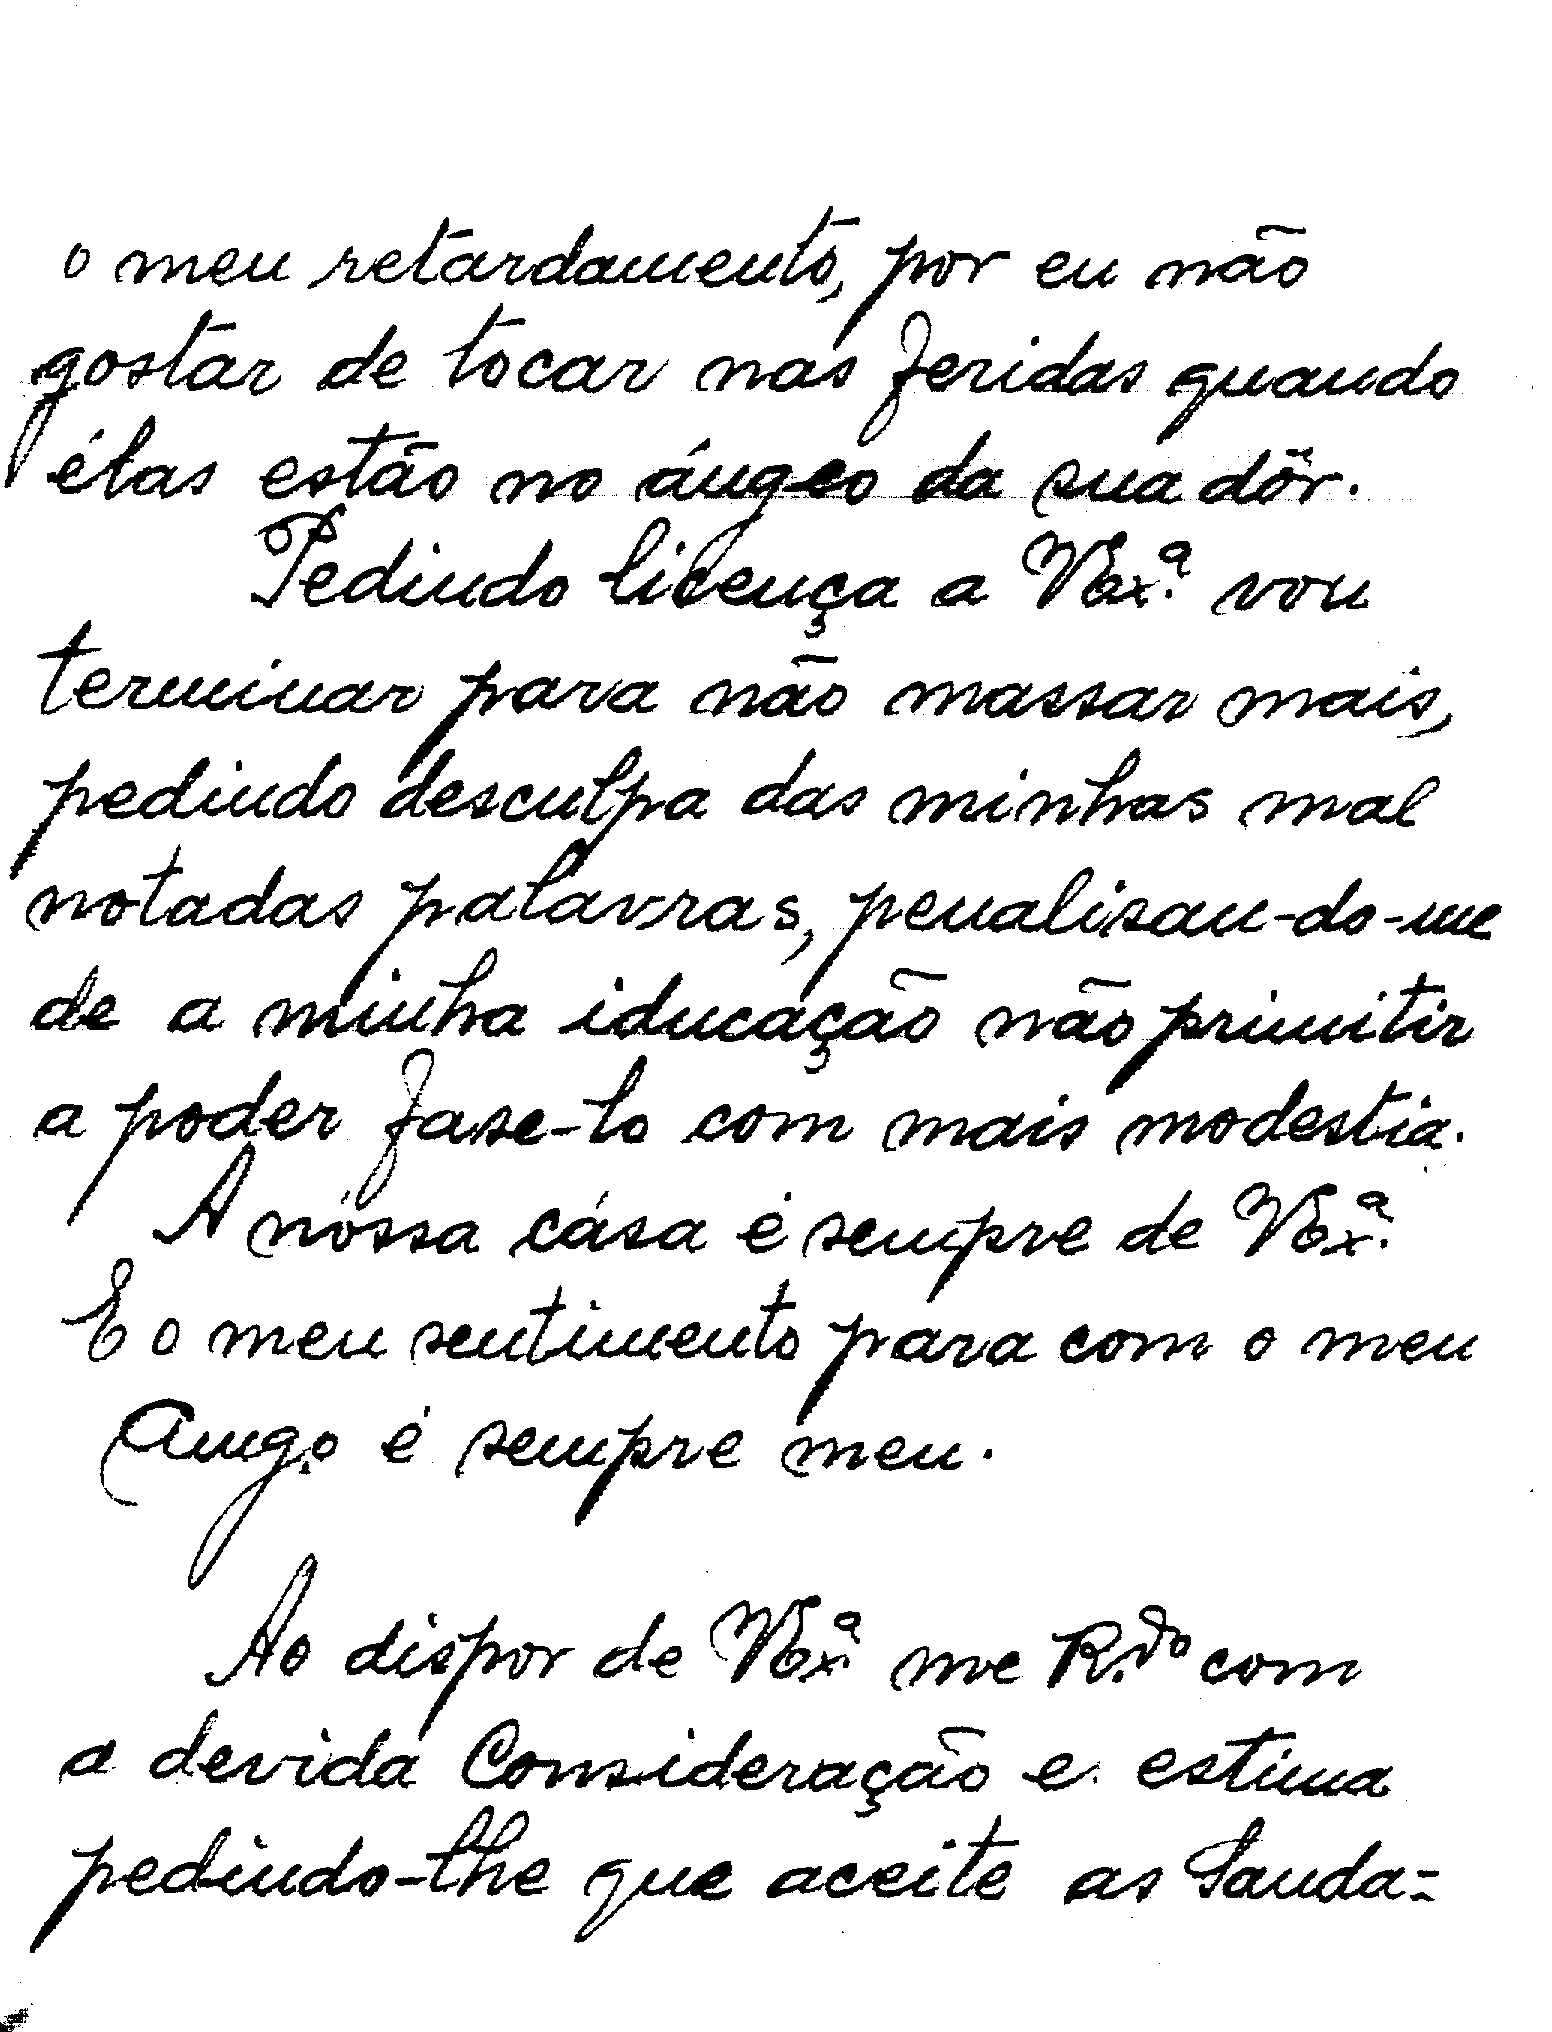 o meu retardamento, por eu não
gostar de tocar nas feridas quando
élas estão no áugeo da sua dôr.
Pedindo licença a VEx.ª vou
terminar para não massar mais,
pedindo desculpa das minhas mal
notadas palavras, penalisan-do-me
de a minha iducação não primitir
a poder fase-lo com mais modestia.
A nóssa cása é sempre de VEx.ª
E o meu sentimento para com o meu
Amg.o é sempre meu.
Ao dispor de VEx.ª me R.do com
a devida Consideração e estima
pedindo-lhe que aceite as Sauda=